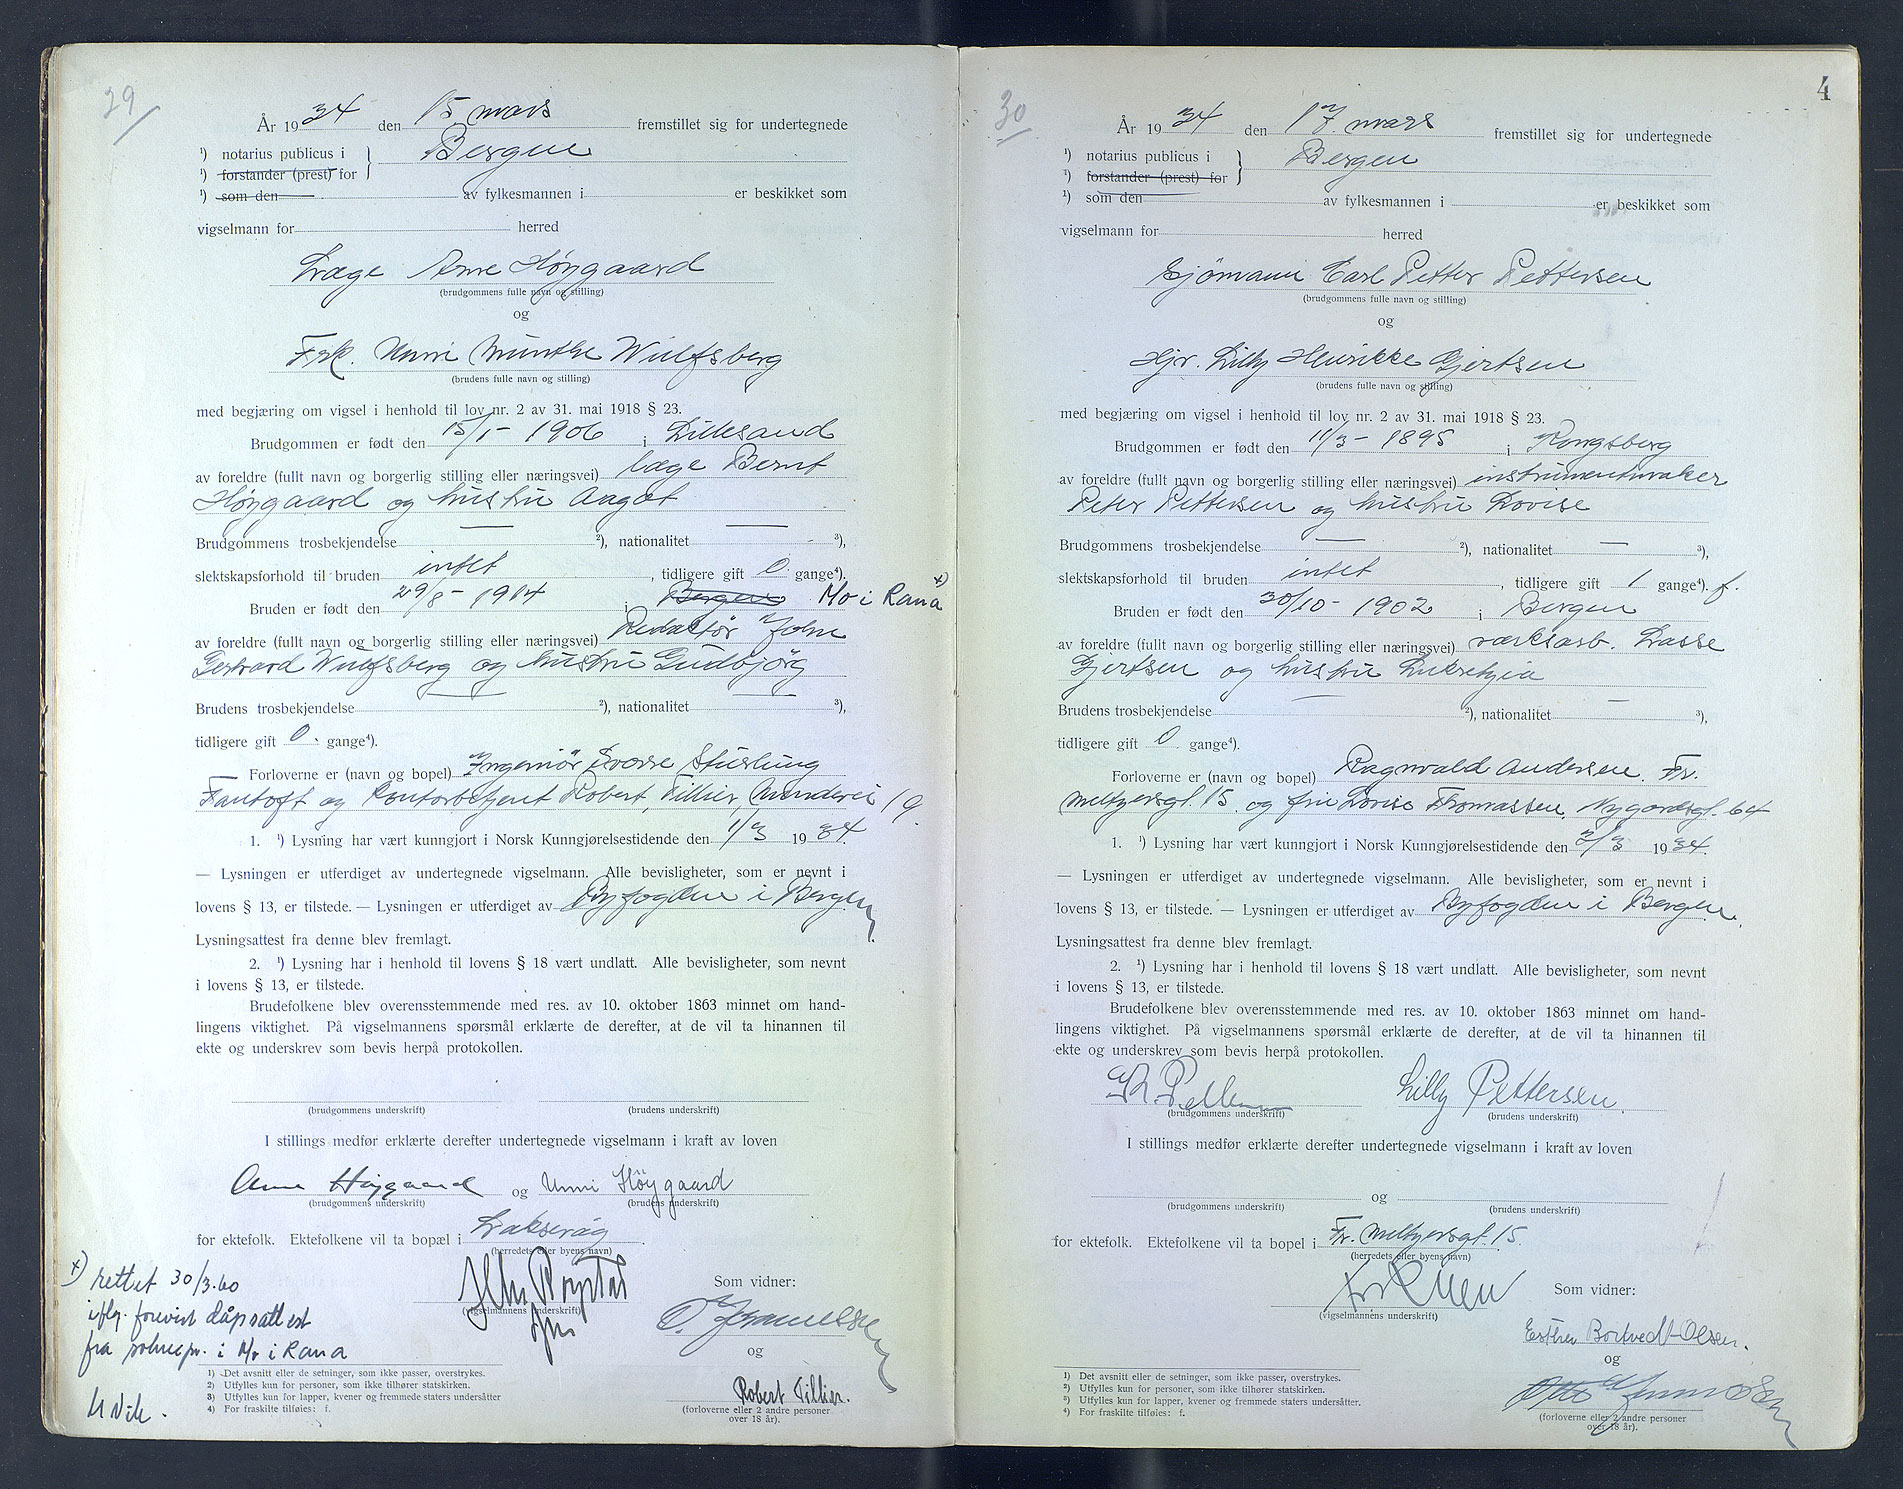 29
År 1934 den 15 mars fremstillet sig for undertegnede
¹) notarius publicus i Bergen
¹) forstander (prest) for
¹) som den av fylkesmannen i er beskikket som
vigselmann for herred
Læge Arne Höygaard
(brudgommens fulle navn og stilling)
og
Frk. Unni Munthe Wulfsberg
(brudens fulle navn og stilling)
med begjæring om vigsel i henhold til lov nr. 2 av 31. mai 1918 § 23.
Brudgommen er født den 15/1 - 1906 i Lillesand
av foreldre (fullt navn og borgerlig stilling eller næringsvei) læge Bernt
Höygaard og hustru Aagot
Brudgommens trosbekjendelse — ²), nationalitet — ³),
slektskapsforhold til bruden intet, tidligere gift 0 gange⁴).
Bruden er født den 29/8 - 1914 i Bergen Mo i Rana x)
av foreldre (fullt navn og borgerlig stilling eller næringsvei) Redaktör John
Gerhard Wulfsberg og hustru Gudbjörg
Brudens trosbekjendelse — ²), nationalitet — ³),
tidligere gift 0. gange⁴).
Forloverne er (navn og bopel) Ingeniör Sturlung
Fantoft og Kontorbetjent Robert Tillier, 19.
1. ¹) Lysning har vært kunngjort i Norsk Kunngjørelsestidende den 1/3 1934.
— Lysningen er utferdiget av undertegnede vigselmann. Alle bevisligheter, som er nevnt i
lovens § 13, er tilstede. — Lysningen er utferdiget av Byfogden i Bergen.
Lysningsattest fra denne blev fremlagt.
2. ¹) Lysning har i henhold til lovens § 18 vært undlatt. Alle bevisligheter, som nevnt
i lovens § 13, er tilstede.
Brudefolkene blev overensstemmende med res. av 10. oktober 1863 minnet om hand-
lingens viktighet. På vigselmannens spørsmål erklærte de derefter, at de vil ta hinannen til
ekte og underskrev som bevis herpå protokollen.
(brudgommens underskrift) (brudens underskrift)
I stillings medfør erklærte derefter undertegnede vigselmann i kraft av loven
Arne Höygaard og Unni Höygaard
(brudgommens underskrift) (brudens underskrift)
for ektefolk. Ektefolkene vil ta bopæl i Laksevåg
(herredets eller byens navn)
(vigselmannens underskrift)
Som vidner:
og
Robert Tillier.
(forloverne eller 2 andre personer
over 18 år).
x) rettet 30/3.60
iflg. forevist dåpsattest
fra soknepr. i Mo i Rana
¹) Det avsnitt eller de setninger, som ikke passer, overstrykes.
²) Utfylles kun for personer, som ikke tilhører statskirken.
³) Utfylles kun for lapper, kvener og fremmede staters undersåtter
⁴) For fraskilte tilføies: f.
4
30
År 1934 den 17. mars fremstillet sig for undertegnede
¹) notarius publicus i Bergen
¹) forstander (prest) for
¹) som den av fylkesmannen i er beskikket som
vigselmann for herred
Sjömann Carl Petter Pettersen
(brudgommens fulle navn og stilling)
og
Hjv. Lilly Henrikke Gjertsen
(brudens fulle navn og stilling)
med begjæring om vigsel i henhold til lov nr. 2 av 31. mai 1918 § 23.
Brudgommen er født den 11/3 - 1895 i Kongsberg
av foreldre (fullt navn og borgerlig stilling eller næringsvei) instrumentmaker
Peter Pettersen og hustru Lovise
Brudgommens trosbekjendelse — ²), nationalitet — ³),
slektskapsforhold til bruden intet, tidligere gift 1 gange⁴). f.
Bruden er født den 30/10 - 1902 i Bergen
av foreldre (fullt navn og borgerlig stilling eller næringsvei) verksarb. Lasse
Gjertsen og hustru Lukretzia
Brudens trosbekjendelse — ²), nationalitet — ³),
tidligere gift 0 gange⁴).
Forloverne er (navn og bopel) Ragnvald Andersen, Fr.
Meltzersgt. 15. og fru Lovise Thomassen, Nygårdsgt. 64
1. ¹) Lysning har vært kunngjort i Norsk Kunngjørelsestidende den 2/3 1934.
— Lysningen er utferdiget av undertegnede vigselmann. Alle bevisligheter, som er nevnt i
lovens § 13, er tilstede. — Lysningen er utferdiget av Byfogden i Bergen.
Lysningsattest fra denne blev fremlagt.
2. ¹) Lysning har i henhold til lovens § 18 vært undlatt. Alle bevisligheter, som nevnt
i lovens § 13, er tilstede.
Brudefolkene blev overensstemmende med res. av 10. oktober 1863 minnet om hand-
lingens viktighet. På vigselmannens spørsmål erklærte de derefter, at de vil ta hinannen til
ekte og underskrev som bevis herpå protokollen.
Lilly Pettersen.
(brudgommens underskrift) (brudens underskrift)
I stillings medfør erklærte derefter undertegnede vigselmann i kraft av loven
og
(brudgommens underskrift) (brudens underskrift)
for ektefolk. Ektefolkene vil ta bopel i Fr. Meltzersgt. 15.
(herredets eller byens navn)
(vigselmannens underskrift)
Som vidner:
Esther Bortvedt-Olsen.
og
Otto
(forloverne eller 2 andre personer
over 18 år).
¹) Det avsnitt eller de setninger, som ikke passer, overstrykes.
²) Utfylles kun for personer, som ikke tilhører statskirken.
³) Utfylles kun for lapper, kvener og fremmede staters undersåtter.
⁴) For fraskilte tilføies: f.